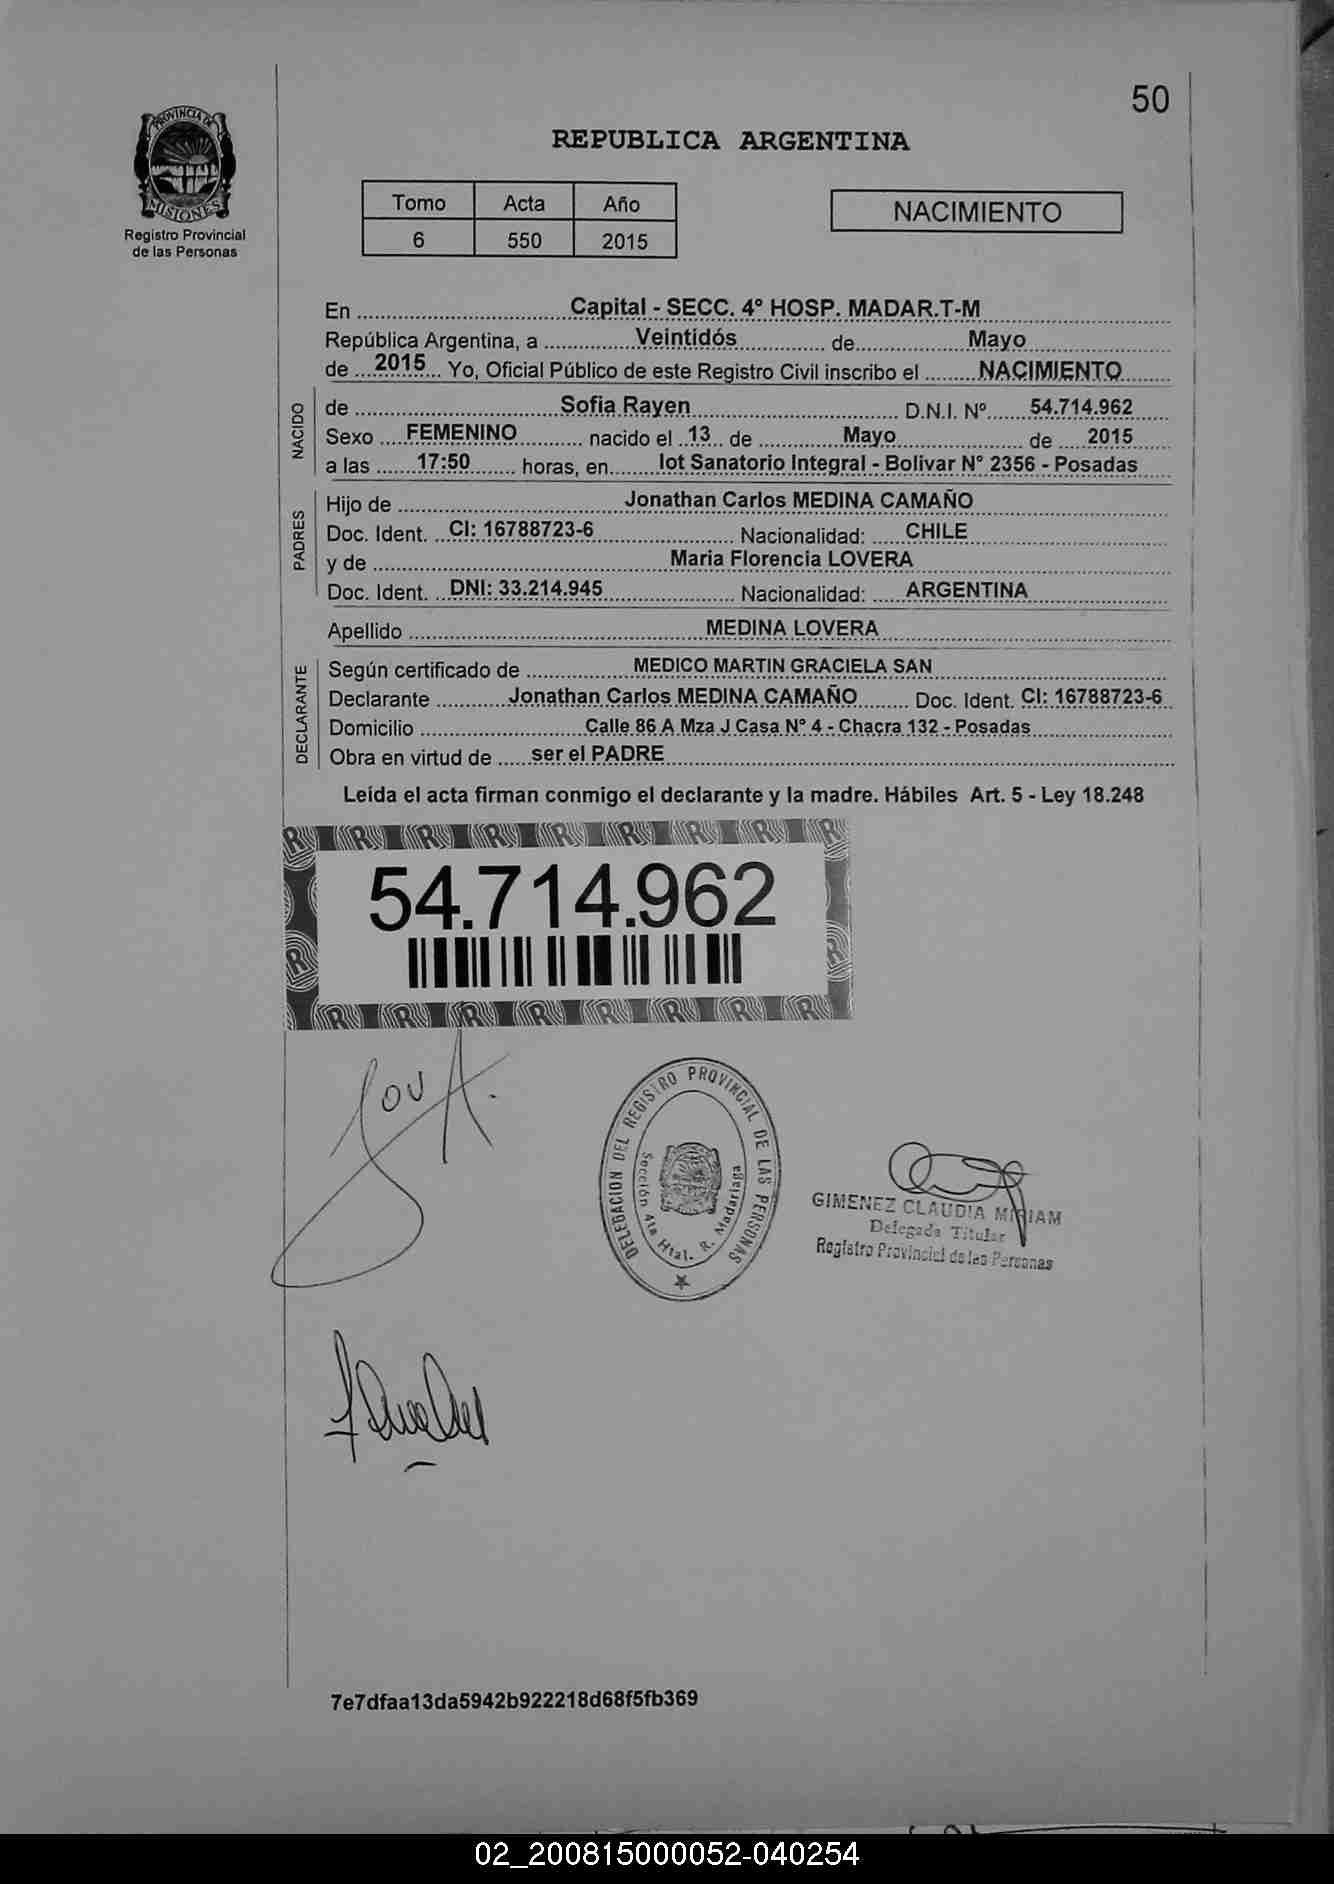 50
PROVINCIA DE
MISIONES
Registro Provincial
de las Personas
REPUBLICA ARGENTINA
Tomo Acta Año
6 550 2015
NACIMIENTO
En Capital - SECC. 4° HOSP. MADAR.T-M
República Argentina, a Veintidós de Mayo
de 2015 Yo, Oficial Público de este Registro Civil inscribo el NACIMIENTO
NACIDO
de Sofia Rayen D.N.I. Nº 54.714.962
Sexo FEMENINO nacido el 13 de Mayo de 2015
a las 17:50 horas, en Iot Sanatorio Integral - Bolivar N° 2356 - Posadas
PADRES
Hijo de Jonathan Carlos MEDINA CAMAÑO
Doc. Ident. CI: 16788723-6 Nacionalidad: CHILE
y de Maria Florencia LOVERA
Doc. Ident. DNI: 33.214.945 Nacionalidad: ARGENTINA
Apellido MEDINA LOVERA
DECLARANTE
Según certificado de MEDICO MARTIN GRACIELA SAN
Declarante Jonathan Carlos MEDINA CAMAÑO Doc. Ident. CI: 16788723-6
Domicilio Calle 86 A Mza J Casa N° 4 - Chacra 132 - Posadas
Obra en virtud de ser el PADRE
Leída el acta firman conmigo el declarante y la madre. Hábiles Art. 5 - Ley 18.248
54.714.962
DELEGACION DEL REGISTRO PROVINCIAL DE LAS PERSONAS
Sección 4ta Htal. R. Madariaga
GIMENEZ CLAUDIA MIRIAM
Delegada Titular
Registro Provincial de las Personas
7e7dfaa13da5942b922218d68f5fb369
02_200815000052-040254